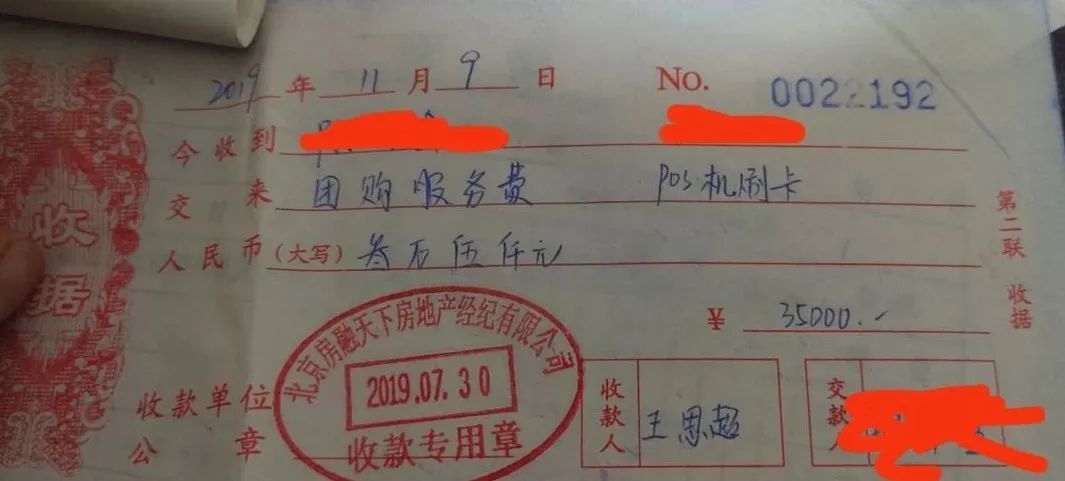 2019 年 11 月 9 日 No. 0022192
今收到
交来 团购服务费 POS机刷卡
人民币(大写) 叁万伍仟元
¥ 35000.-
收款单位公章
北京房融天下房地产经纪有限公司
2019.07.30
收款专用章
收款人 王思超
交款人
第二联 收据
收据